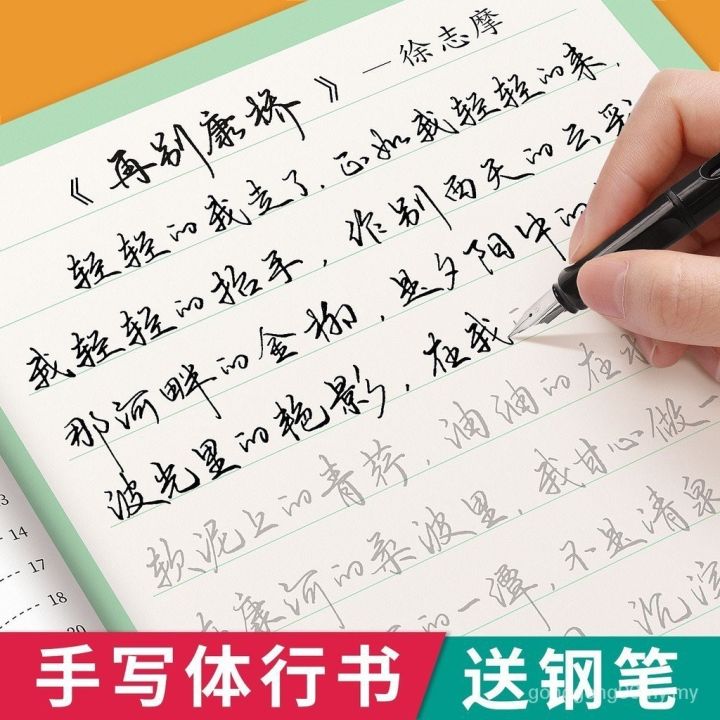 《再别康桥》—徐志摩
轻轻的我走了,正如我轻轻的来,
我轻轻的招手,作别西天的云彩
那河畔的金柳,是夕阳中的
波光里的艳影,在我
软泥上的青荇,油油的在水
在康河的柔波里,我甘心做一
的一潭,不是清泉
沉淀
3
14
17
18
20
手写体行书
送钢笔